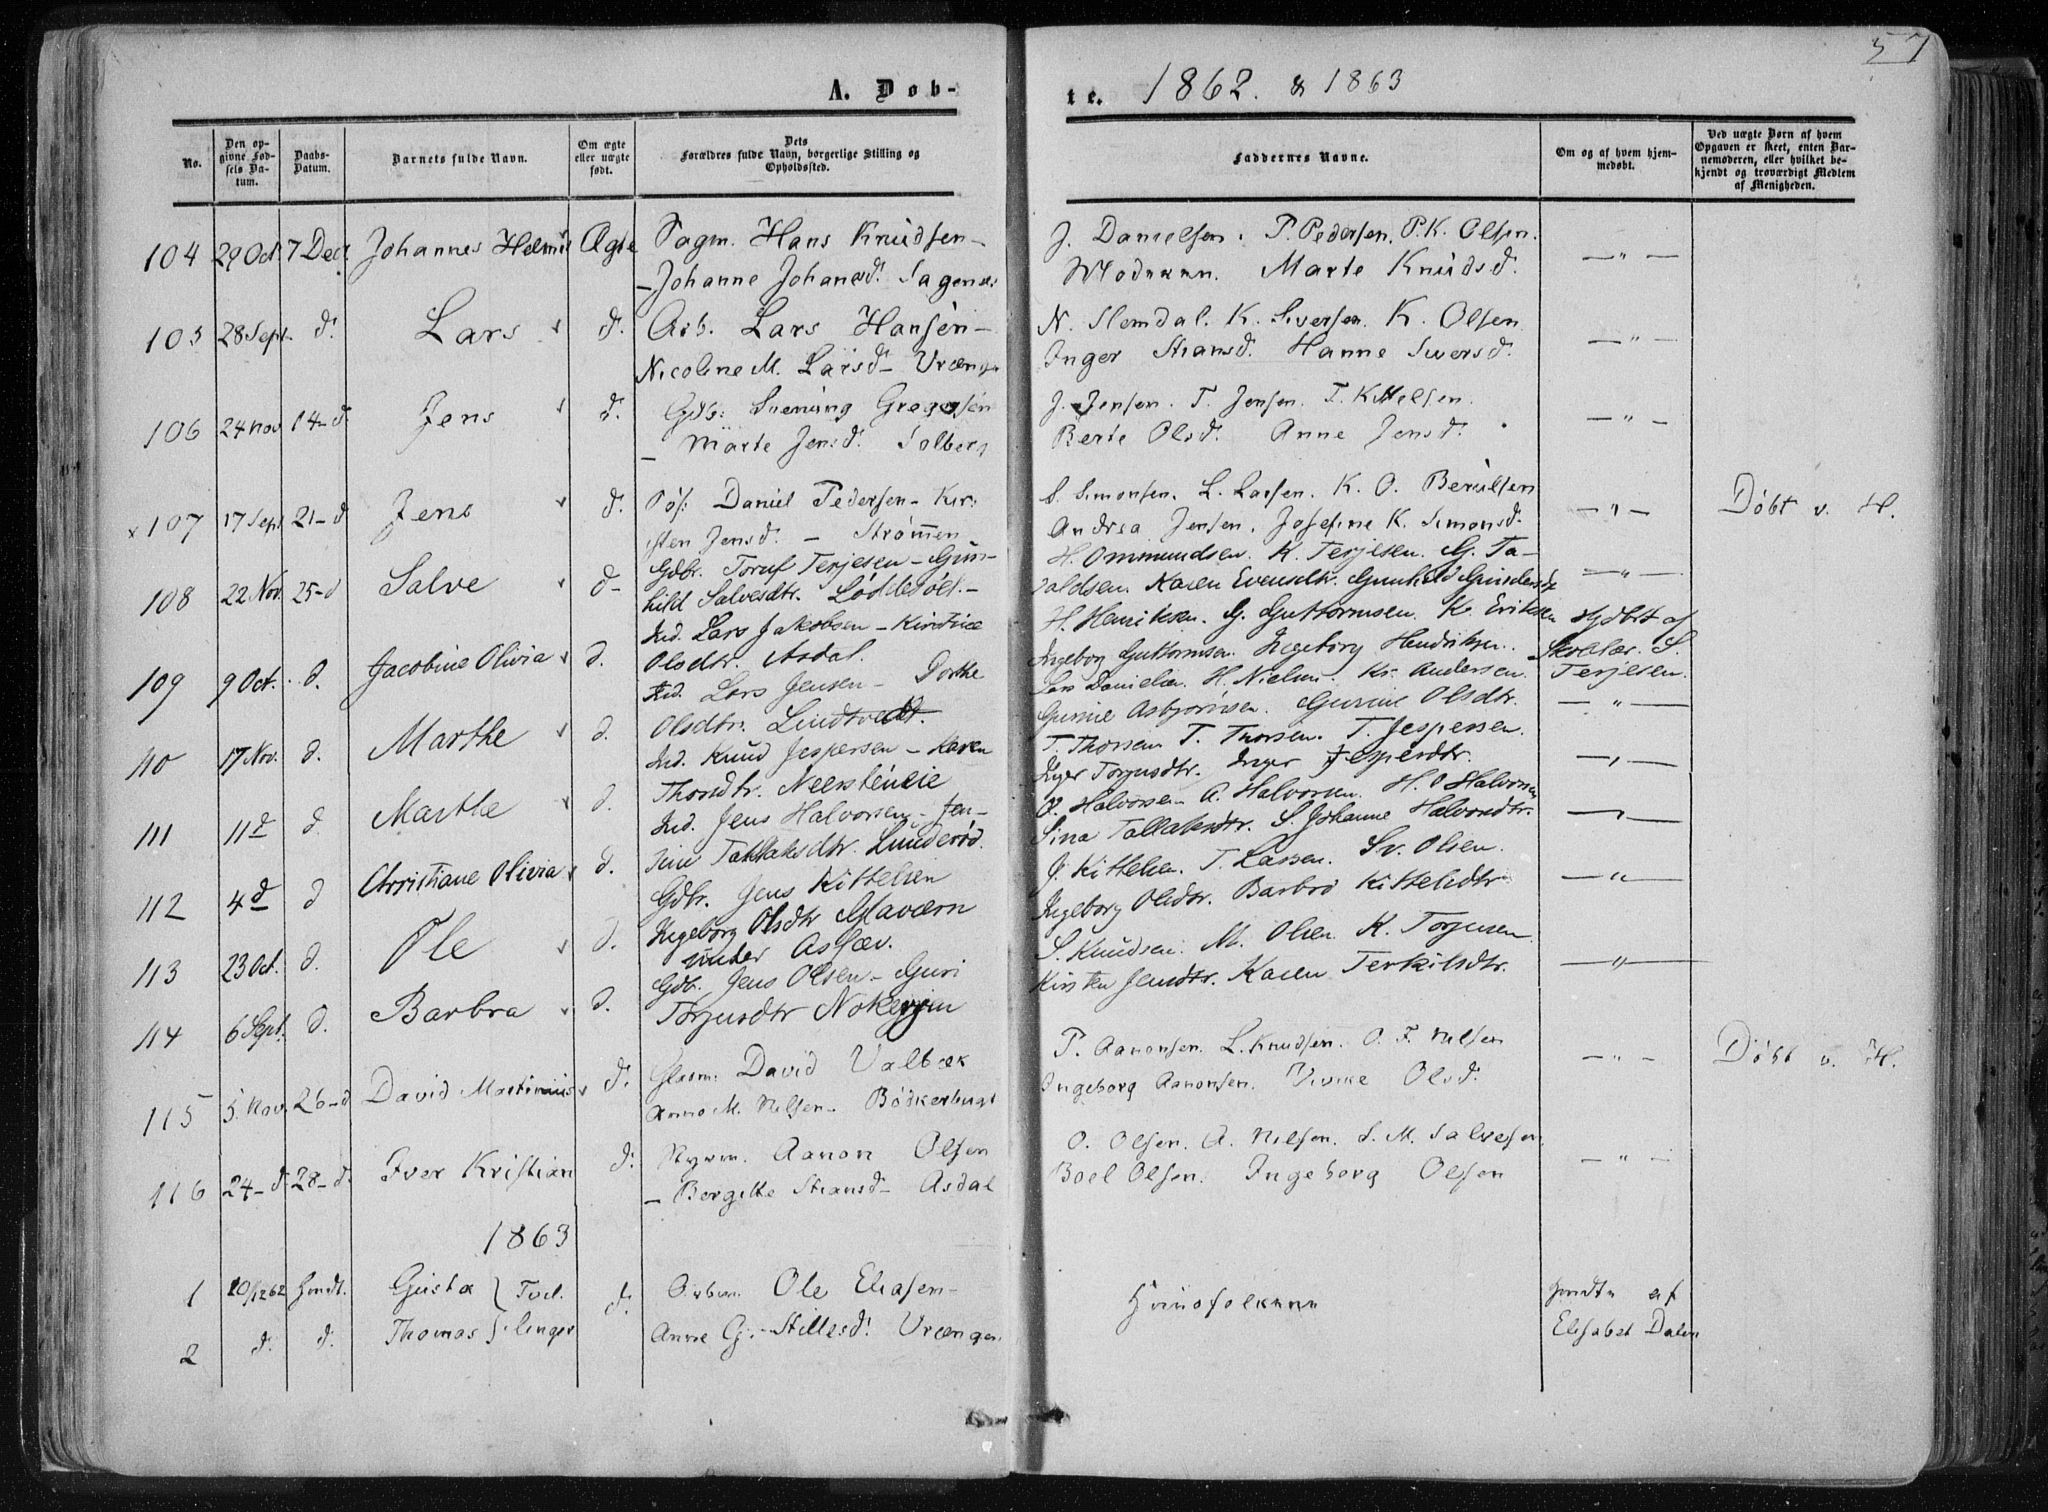 57
A. Døb-
te. 1862. & 1863
No.
Den op-
givne Fød-
sels Da-
tum.
Daabs-
Datum.
Barnets fulde Navn.
Om ægte
eller uægte
født.
Dets
Forældres fulde Navn, borgerlige Stilling og
Opholdssted.
Faddernes Navne.
Om og af hvem hjem-
medøbt.
Ved uægte Børn af hvem
Opgaven er skeet, enten Bar-
nemoderen, eller hvilket be-
kjendt og troværdigt Medlem
af Menigheden.
104 29 Oct 7 Dec. Johannes Helmik Ægte Sagm. Hans Knudsen -
- Johanne Johansd. Sagenes
J. Danielsen. P. Pedersen. P.K. Olsen.
Moderen. Marte Knudsd. — " —
105 28 Sept. d. Lars d. Arb. Lars Hansen -
Nicoline M. Larsd - Vrængen
N. Slemdal. K. Siversen. K. Olsen
Inger Stiansd. Hanne Siversd. — " —
106 24 Nov 14 - d. Jens d. Gdb: Gregersen
- Marte Jensd. Solberg
J. Jensen. T. Jensen. T. Kittelsen.
Berte Olsd. Anne Jensd. — " —
x 107 17 Sept 21 - d Jens d. Daniel Pedersen - Kir-
sten Jensd. - Strømmen
S. Simonsen. L. Larsen. K. O. Berulsen
Andrea Jensen. Josefine K. Simonsd. — " — Døbt v. H.
108 22 Nov. 25 - d Salve d - Gdbr. Toruf Terjesen - Gun-
hild Salvesdtr. Løddesøl. -
H. Ommundsen. K. Terjesen. G. Ta-
raldsen. Karen Evensdtr. Gunhild — " —
109 9 Oct. d. Jacobine Olivia d. Ind. Lars Jakobsen - Kirstine
Olsdtr. Asdal.
H. Henriksen. G. Guttormsen. K. Eriksen
Ingeborg Guttormsen. Ingeborg Hendriksen.
Hjdbt af
Skolelær. S.
Terjesen.
110 17 Nov. d. Marthe d. Ind. Lars Jensen - Dorthe
Olsdtr. Lindtvedt.
Lars Danielsen. H. Nielsen. Kr. Andersen.
Gurine Asbjørnsen. Gurine Olsdtr. — " —
111 11 d d. Marthe d. Ind. Knud Jespersen - Karen
Thorsdtr. Neerstenvie
T. Thorsen. T. Thorsen. T. Jespersen.
Inger Torjusdtr. Inger Jespersdtr. — " —
112 4 d d Christiane Olivia d. Ind. Jens Halvorsen - Jen-
sine Tallaksdtr. Lunderød.
O. Halvorsen. A. Halvorsen. H. O Halvorsen
Sina Tallaksdtr. S. Johanne Halvorsdtr. — " —
113 23 Oct. d. Ole d. Gdbr. Jens Kittelsen
Ingeborg Olsdtr Glaværn
under Asfær.
J. Kittelsen. T. Larsen. Sv. Olsen.
Ingeborg Olsdtr. Barbro Kittelsdtr. — " —
114 6 Sept. d. Barbra d. Gdb. Jens Olsen - Guri
Torjusdtr
S. Knudsen. M. Olsen K. Torjusen
Kirsten Jensdtr. Karen Terkilsdtr. — " —
115 5. Nov. 26 - d David Martinius d. Glasm. David Valbæk
Anne M. Nilsen - Bødkerbugt
P. Aanonsen. L. Knudsen. O. F. Nilsen
Ingeborg Aanonsen. Olsd. — " — Døbt v. H.
116 24 - d. 28 - d. Iver Kristian d. Styrm. Aanon Olsen
- Bergitte Stiansd - Asdal
O. Olsen. A. Nilsen. S. M. Salvesen.
Boel Olsen. Ingeborg Olsen — " —
1863
1 20/12 62 Gusta } Tvil-
2 d. d. Thomas } linger d. Ole Eliasen -
Anne G. - Stillesd. Vrængen.
af
Elisabet Dalen